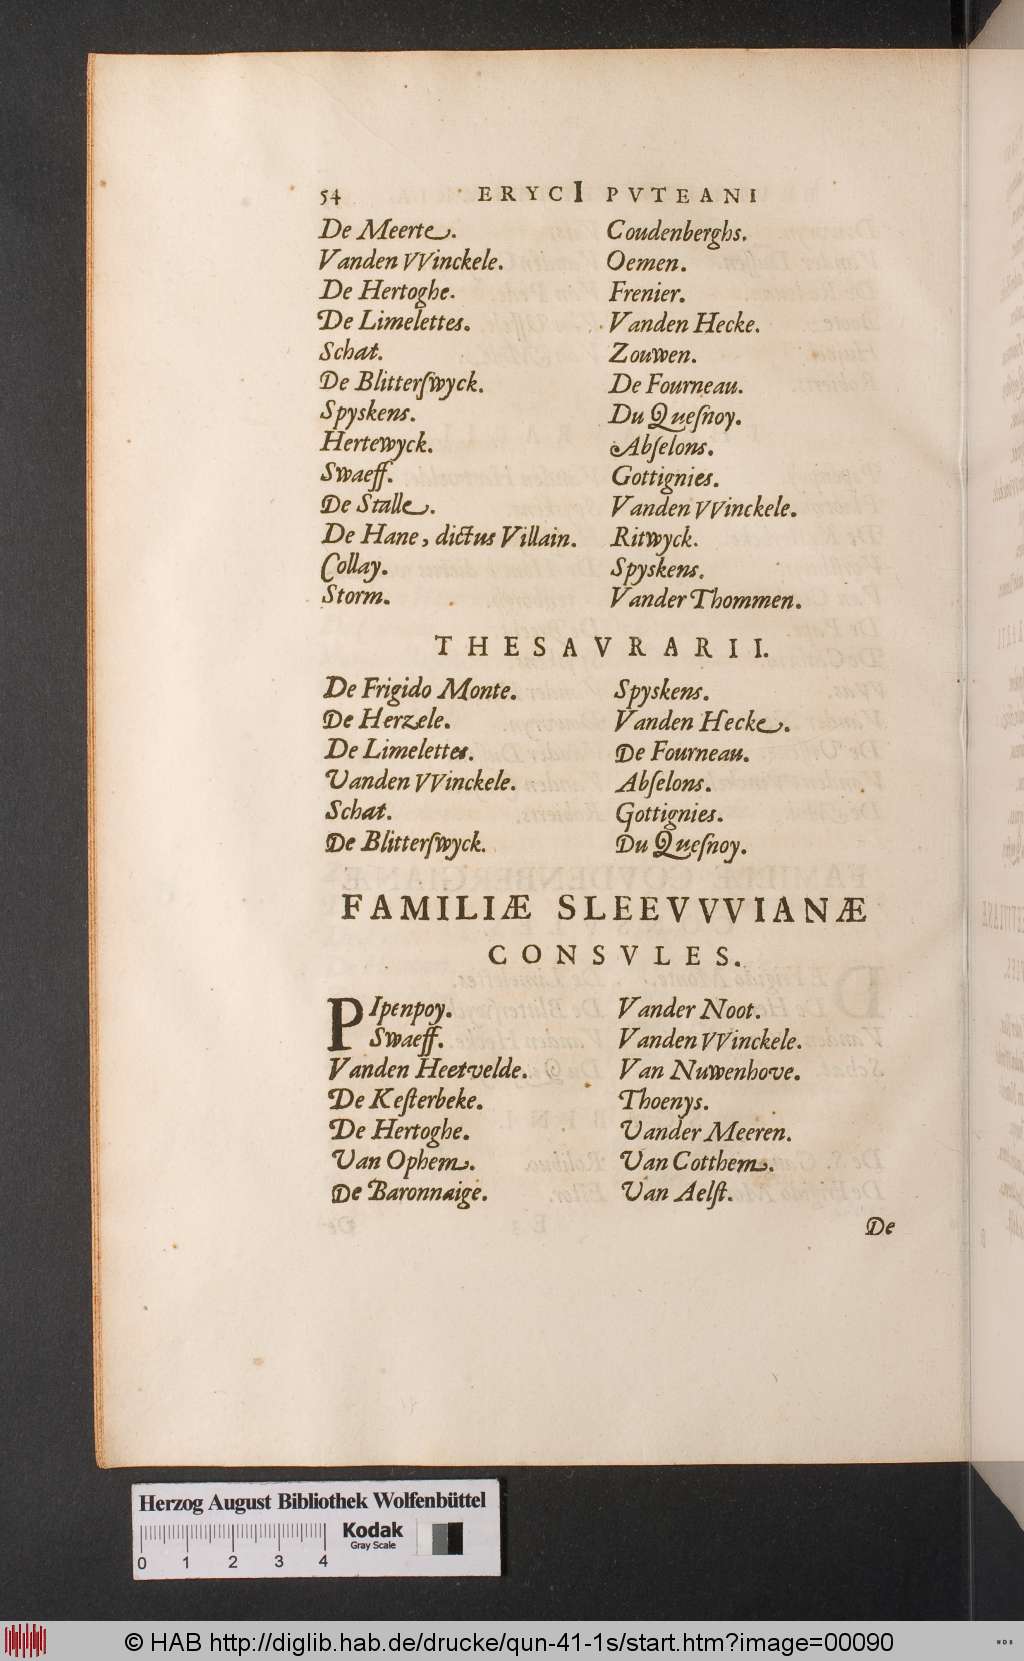 54 ERYCI PVTEANI
De Meerte.
Vanden VVinckele.
De Hertoghe.
De Limelettes.
Schat.
De Blitterſwyck.
Spyskens.
Hertewyck.
Swaeff.
De Stalle.
De Hane, dictus Villain.
Collay.
Storm.
Coudenberghs.
Oemen.
Frenier.
Vanden Hecke.
Zouwen.
De Fourneau.
Du Queſnoy.
Abſelons.
Gottignies.
Vanden VVinckele.
Ritwyck.
Spyskens.
Vander Thommen.
THESAVRARII.
De Frigido Monte.
De Herzele.
De Limelettes.
Vanden VVinckele.
Schat.
De Blitterſwyck.
Spyskens.
Vanden Hecke.
De Fourneau.
Abſelons.
Gottignies.
Du Queſnoy.
FAMILIÆ SLEEVVVVIANÆ
CONSVLES.
PIpenpoy.
Swaeff.
Vanden Heetvelde.
De Keſterbeke.
De Hertoghe.
Van Ophem.
De Baronnaige.
Vander Noot.
Vanden VVinckele.
Van Nuwenhove.
Thoenys.
Vander Meeren.
Van Cotthem.
Van Aelſt.
De
Herzog August Bibliothek Wolfenbüttel
0 1 2 3 4
Kodak
Gray Scale
© HAB http://diglib.hab.de/drucke/qun-41-1s/start.htm?image=00090